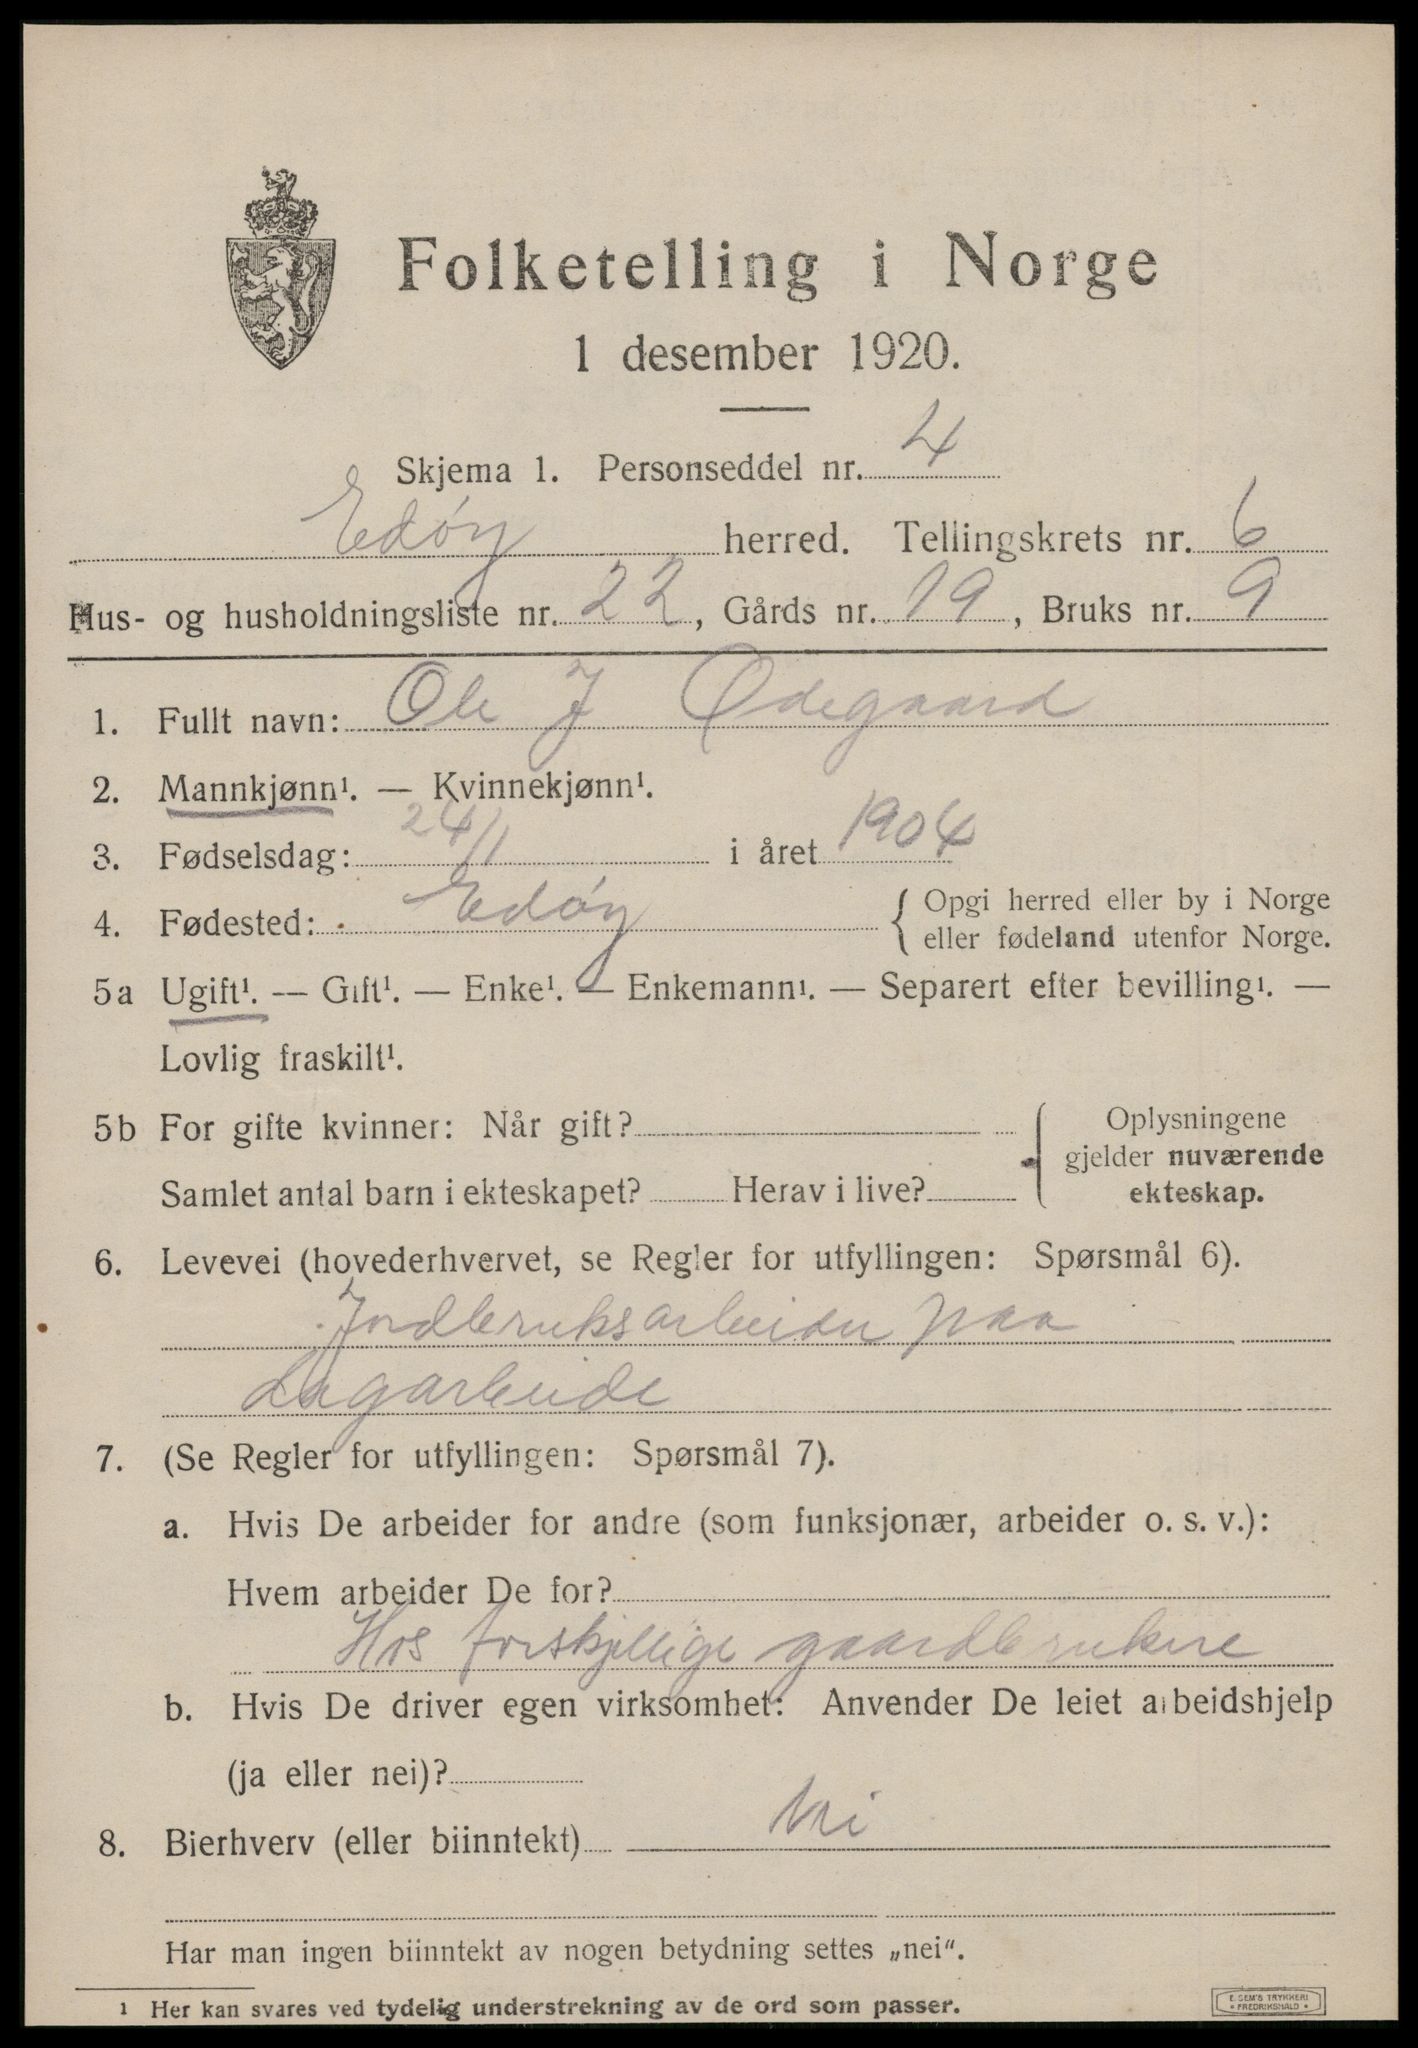 Folketelling i Norge
1 desember 1920.
Skjema 1. Personseddel nr. 4
Edøy herred. Tellingskrets nr. 6
Hus- og husholdningsliste nr. 22, Gårds nr. 19, Bruks nr. 9
1. Fullt navn: Ole J Ødegaard
2. Mannkjønn¹. — Kvinnekjønn¹.
3. Fødselsdag: 24/1 i året 1904
4. Fødested: Edøy { Opgi herred eller by i Norge
eller fødeland utenfor Norge.
5a Ugift¹. — Gift¹. — Enke¹. — Enkemann¹. — Separert efter bevilling¹. —
Lovlig fraskilt¹.
5b For gifte kvinner: Når gift?
Samlet antal barn i ekteskapet? Herav i live?
{ Oplysningene
gjelder nuværende
ekteskap.
6. Levevei (hovederhvervet, se Regler for utfyllingen: Spørsmål 6).
Jordbruksarbeider paa
dagarbeide
7. (Se Regler for utfyllingen: Spørsmål 7).
a. Hvis De arbeider for andre (som funksjonær, arbeider o. s. v.):
Hvem arbeider De for?
Hos forskjellige gaardbrukere
b. Hvis De driver egen virksomhet: Anvender De leiet arbeidshjelp
(ja eller nei)?
8. Bierhverv (eller biinntekt) Nei
Har man ingen biinntekt av nogen betydning settes „nei“.
1 Her kan svares ved tydelig understrekning av de ord som passer.
E. SEM'S TRYKKERI
• FREDRIKSHALD •